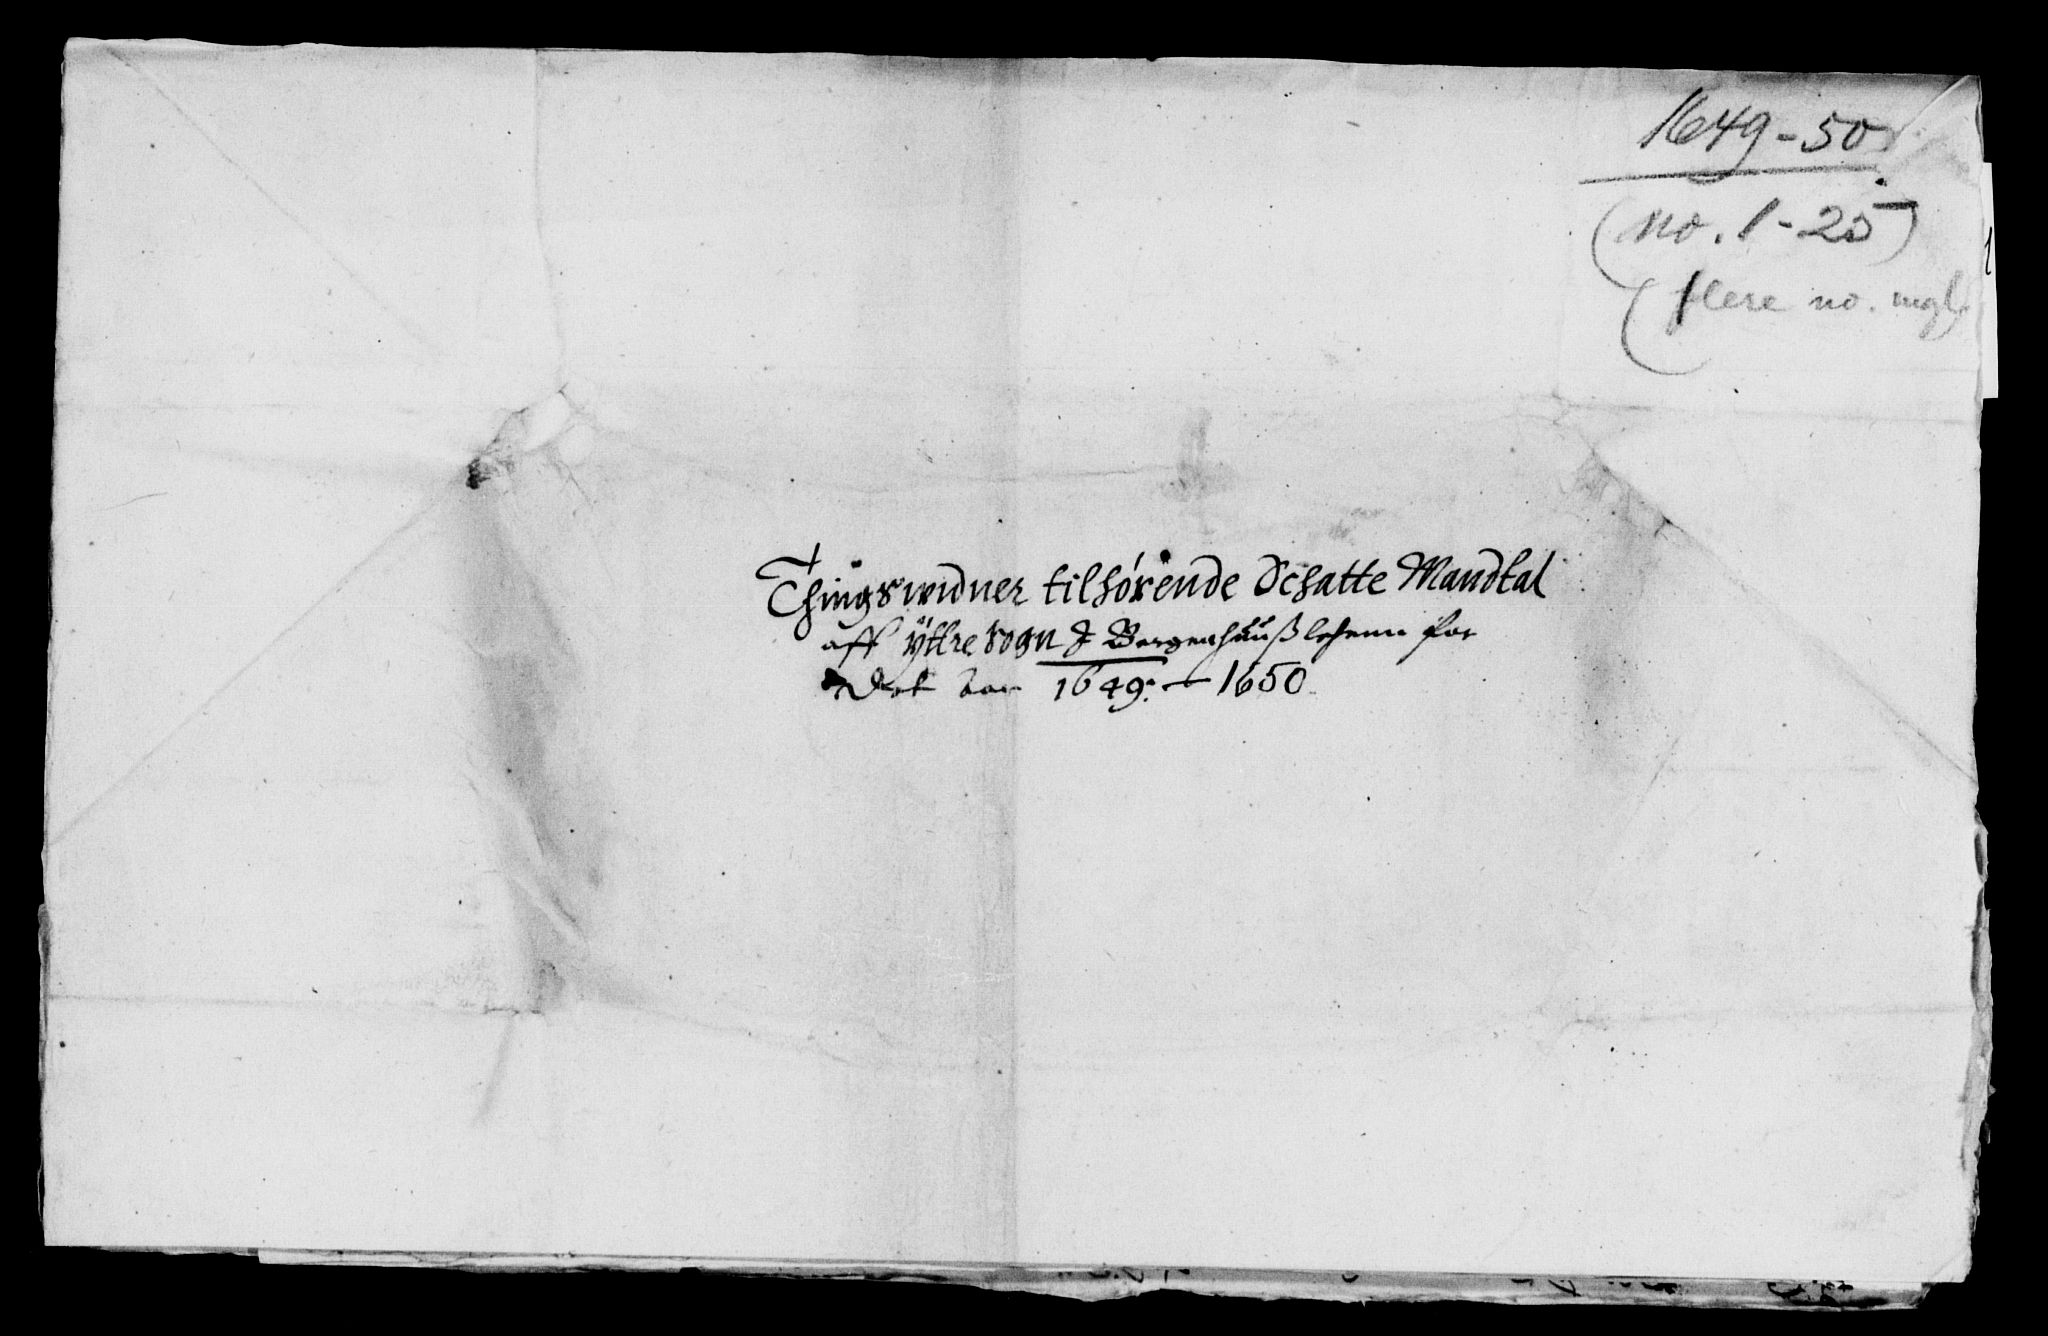 1649-50
(no. 1-25)
(flere no. mgl.
Thingswidner tilhørende Schatte Mandtal
aff ÿttre sogn I Bergenhuuß lehenn for
Det aar 1649. — 1650
1